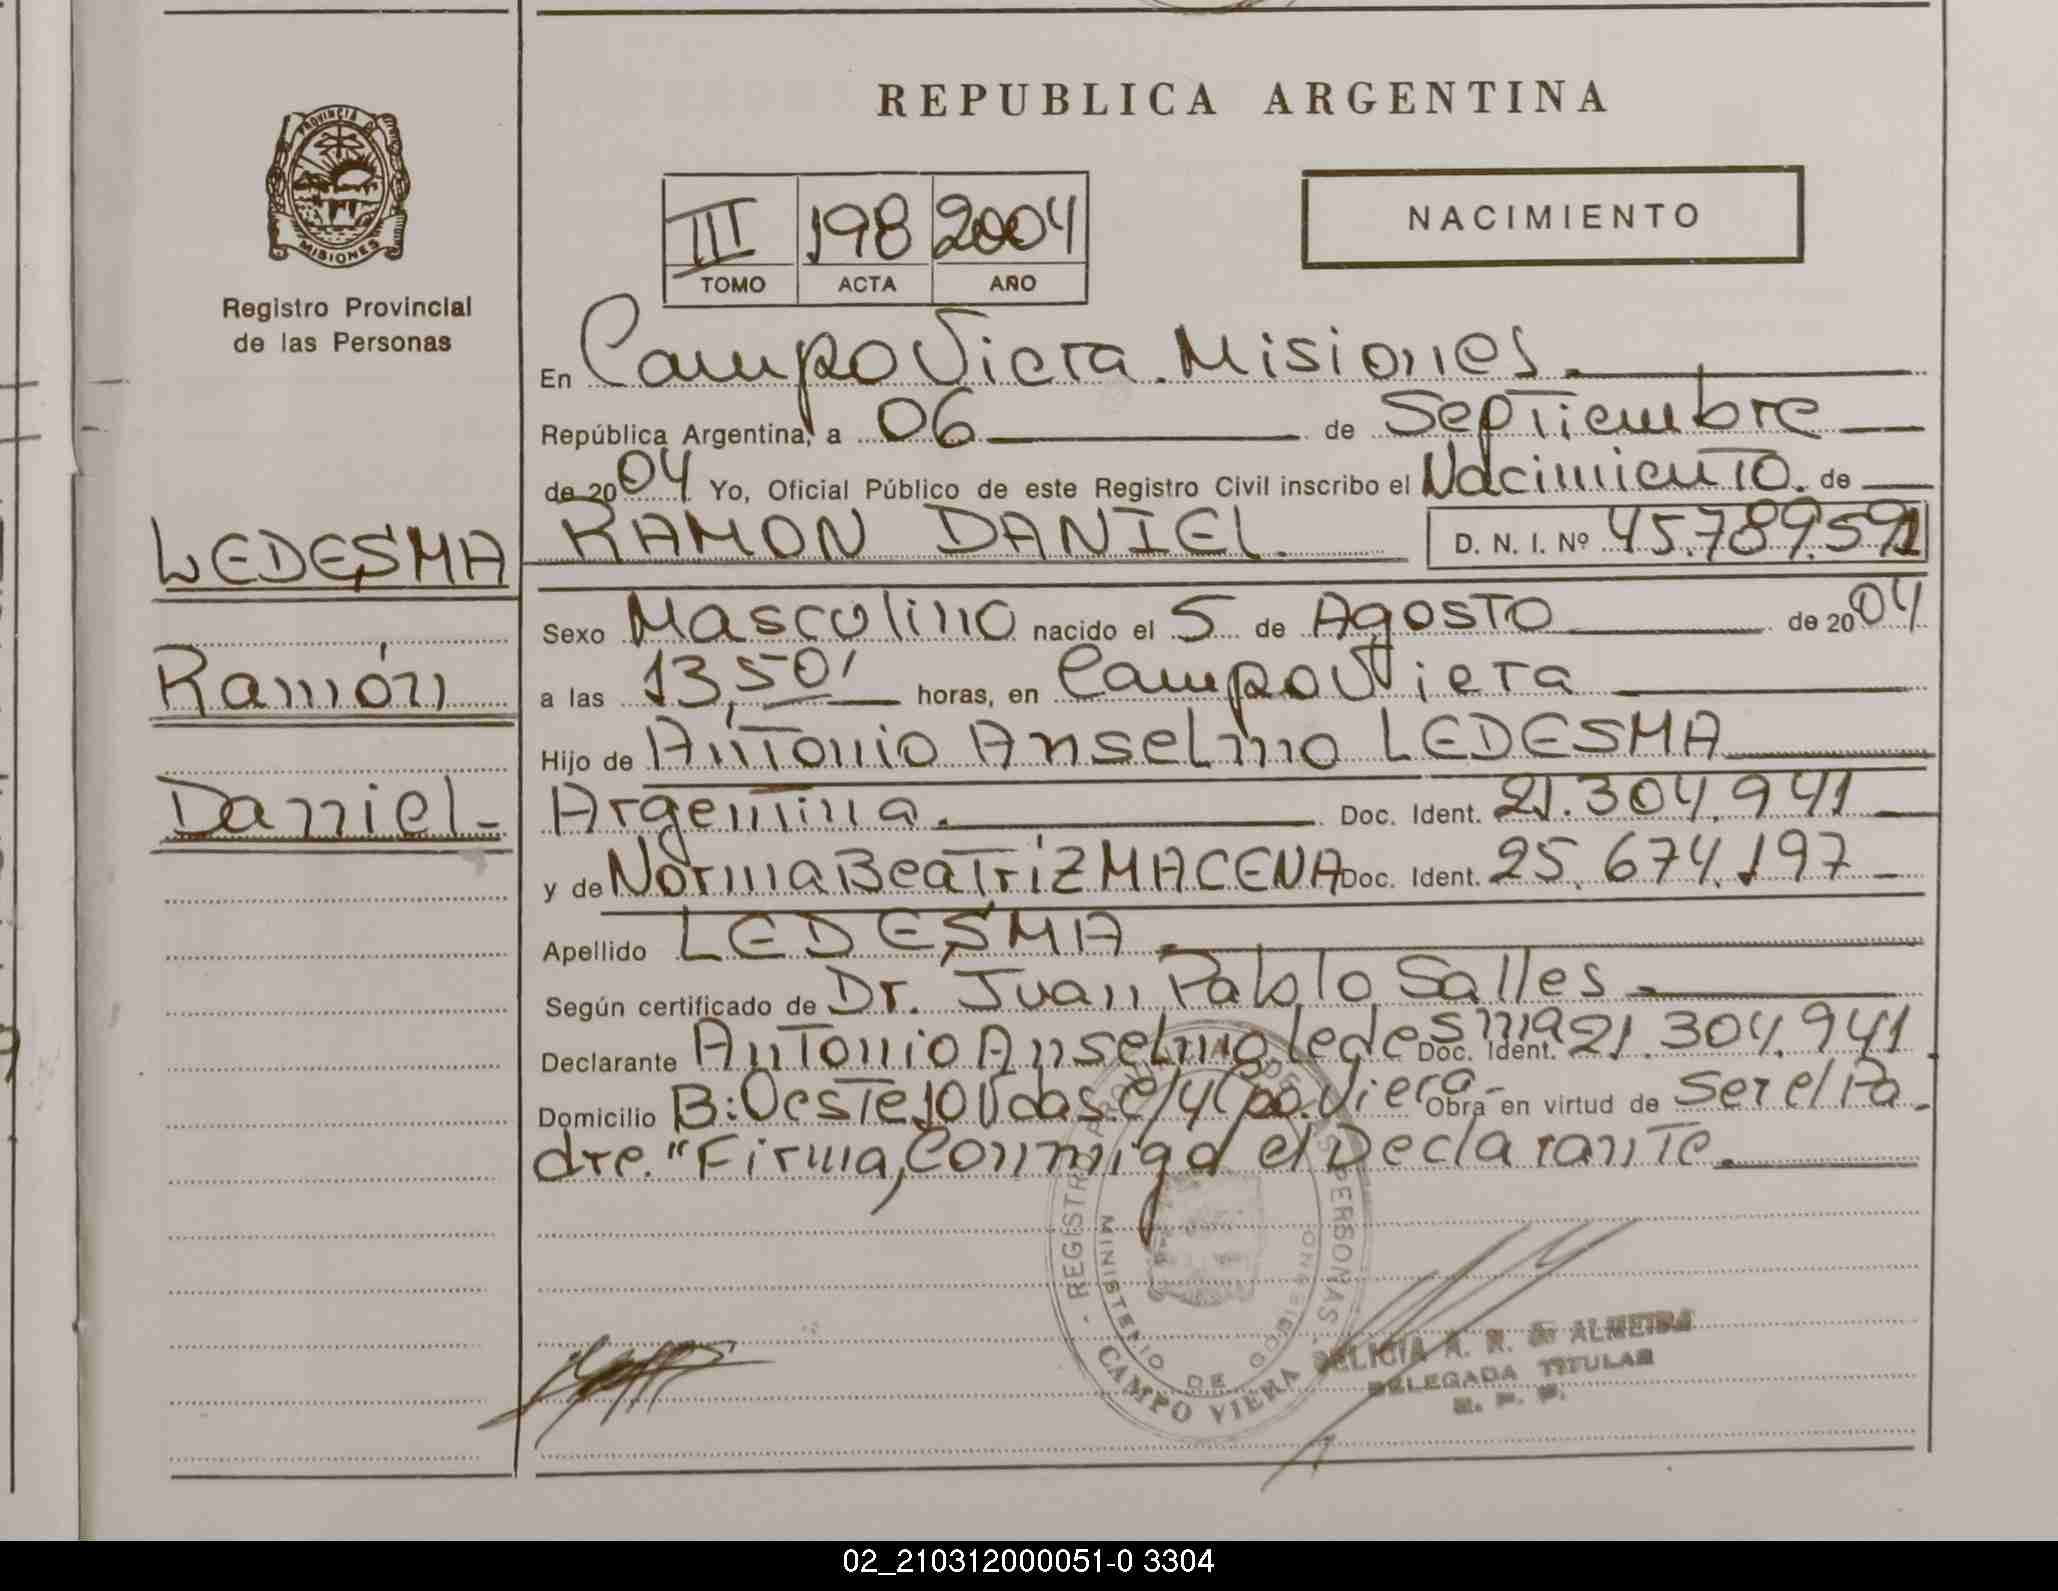 REPUBLICA ARGENTINA
PROVINCIA DE
MISIONES
Registro Provincial
de las Personas
III 198 2004
TOMO ACTA AÑO
NACIMIENTO
En Campo Viera. Misiones.
República Argentina, a 06 de Septiembre
de 2004 Yo, Oficial Público de este Registro Civil inscribo el Nacimiento. de
LEDESMA
Ramón
Daniel
RAMON DANIEL. D. N. I. Nº 45.789.591
Sexo Masculino nacido el 5 de Agosto de 2004
a las 13,50' horas, en Campo Viera
Hijo de Antonio Anselmo LEDESMA
Argentina. Doc. Ident. 21.304.941
y de Norma Beatriz MACENA Doc. Ident. 25.674.197
Apellido LEDESMA
Según certificado de Dr. Juan Pablo Salles
Declarante Antonio Anselmo Ledesma Doc. Ident. 21.304.941
Domicilio B: Oeste 10 Vdas. c/4 Cpo. Viera- Obra en virtud de Ser el Pa
dre. "Firma, Conmigo el Declarante.
REGISTRO DE LAS PERSONAS
MINISTERIO DE GOBIERNO
CAMPO VIERA
A. R. ALMEIDA
DELEGADA TITULAR
02_210312000051-0 3304